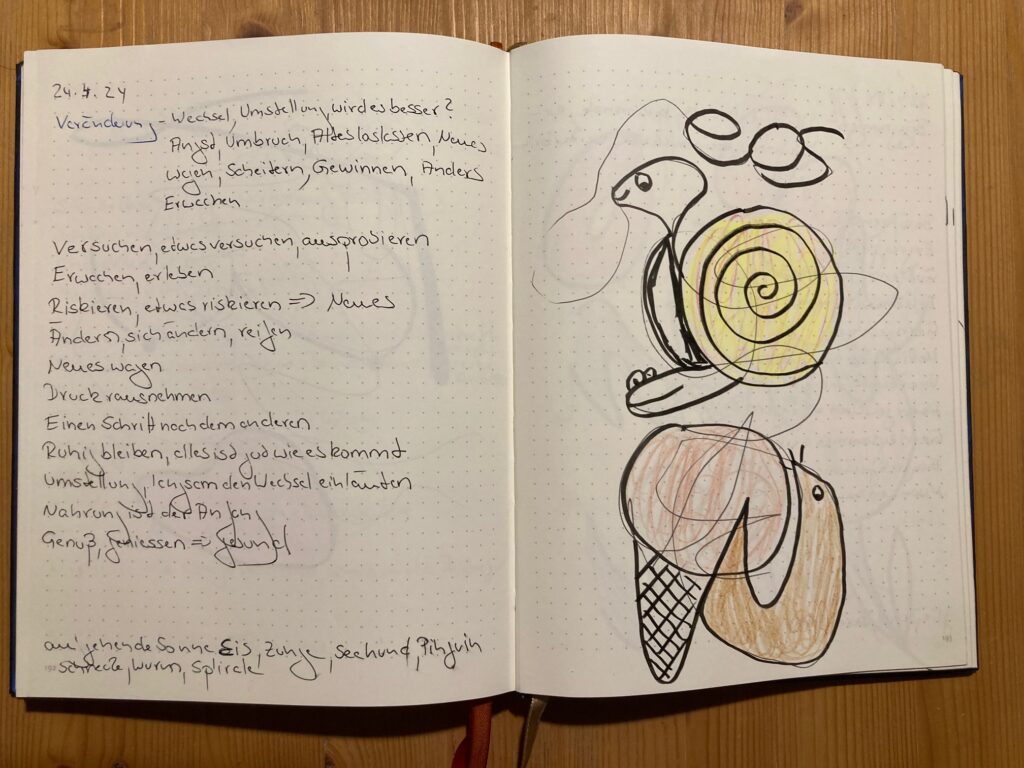 24.4.24
Veränderung - Wechsel, Umstellung, wird es besser?
Angst, Umbruch, Altes loslassen, Neues
wagen, Scheitern, Gewinnen, Anders
Erwachen
Versuchen, etwas versuchen, ausprobieren
Erwachen, erleben
Riskieren, etwas riskieren => Neues
Ändern, sich ändern, reifen
Neues wagen
Druck rausnehmen
Einen Schritt nach dem anderen
Ruhig bleiben, alles ist gut wie es kommt
Umstellung, langsam den Wechsel einläuten
Nahrung ist der Anfang
Genuß, geniessen => gesund
aufgehende Sonne Eis, Zunge, Seehund, Pinguin
102 Schnecke, Wurm, Spirale
103